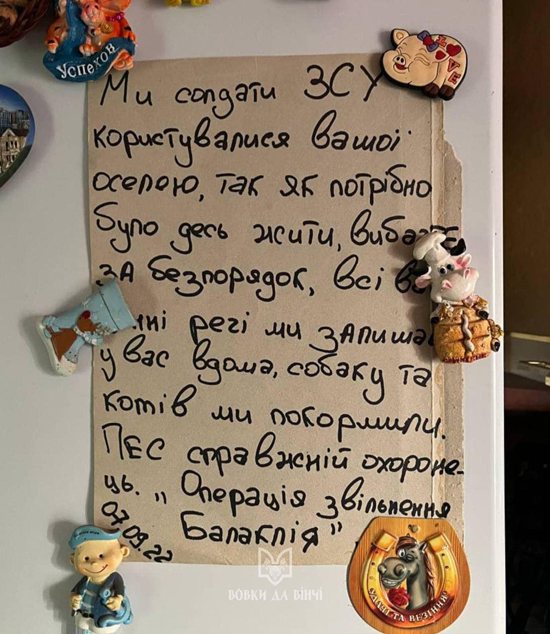 Успехов
LOVE
Ми солдати ЗСУ
користувалися вашої
оселею, так як потрібно
було десь жити,
за безпорядок, всі
речі ми
у вас вдома, собаку та
котів ми покормили.
ПЕС справжній охороне-
ць. „Операція звільнення
Балаклія"
07.09.22
ВОВКИ ДА ВІНЧІ
УДАЧИ ТА ВЕЗІННЯ!